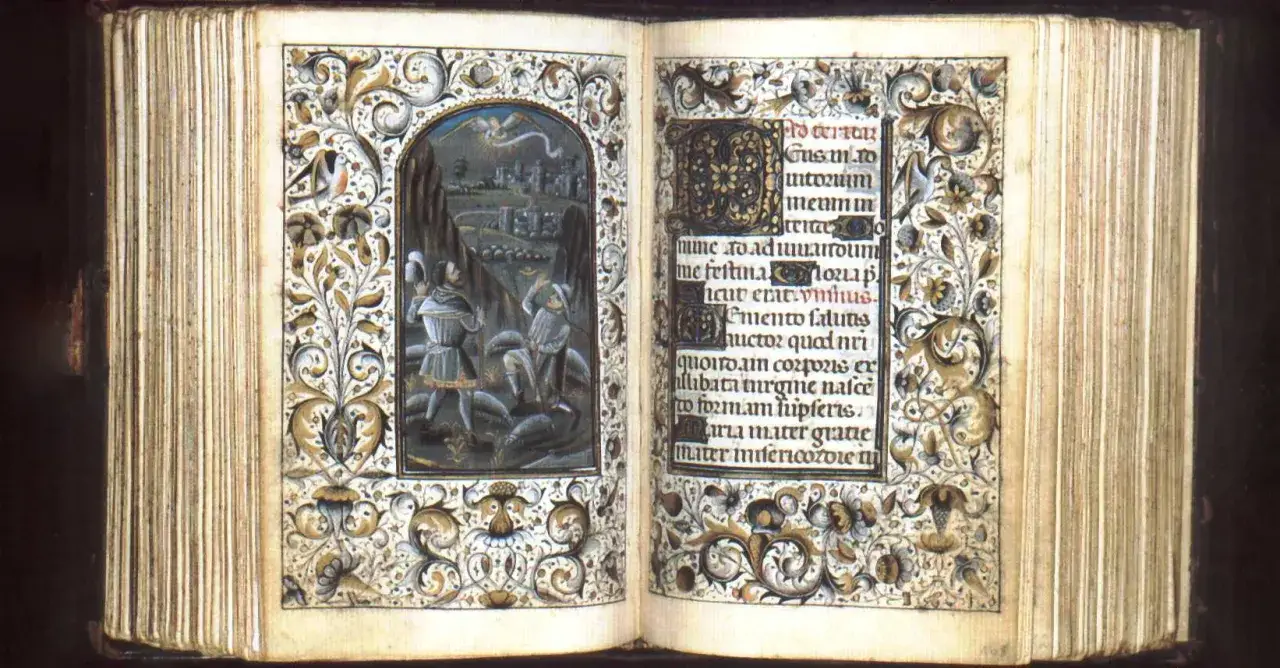 Ad tertiam
Deus in ad
iutorium
meum in
tende Do
mine ad adiuuandum
me festina Gloria p̄
Sicut erat. ymnus.
Memento salutis
auctor quod nr̄i
quondam corporis ex
illibata uirgine nascē
do formam sūpseris.
Maria mater gratie
mater misericordie tu